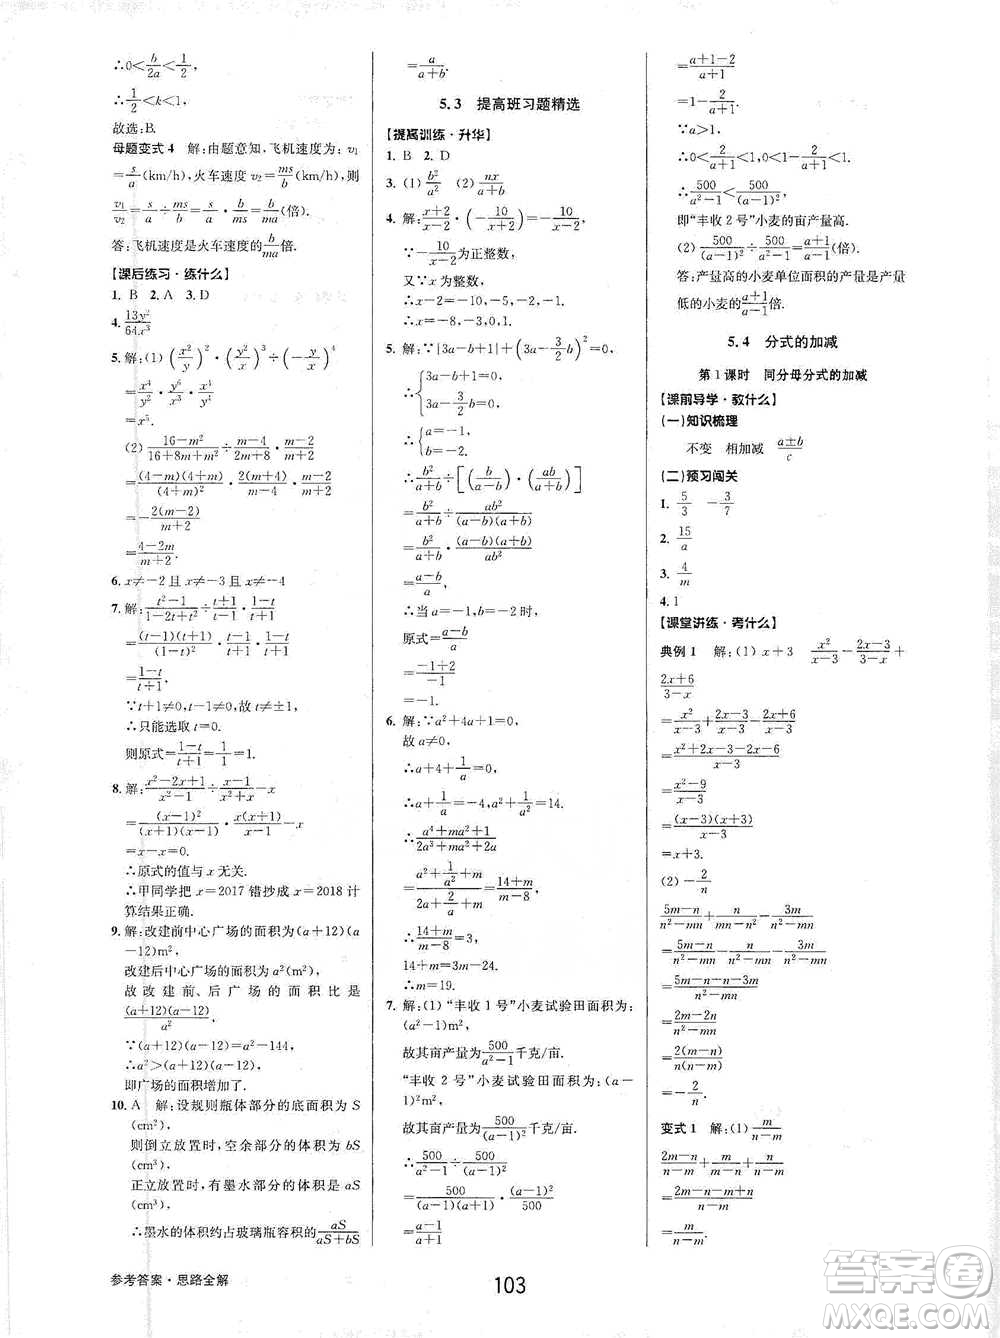 ∴0<b/2a<1/2,
∴1/2<k<1,
故选:B.
母题变式4 解:由题意知,飞机速度为:v₁
=s/a(km/h),火车速度v₂=ms/b(km/h),则
v₁/v₂=s/a÷ms/b=s/a·b/ms=b/ma(倍).
答:飞机速度是火车速度的b/ma倍.
【课后练习·练什么】
1. B 2. A 3. D
4. 13y²/64x³
5. 解:(1)(x²/y)²·(y²/x)³÷(y/x)⁴
=x⁴/y²·y⁶/x³·x⁴/y⁴
=x⁵.
(2)(16-m²)/(16+8m+m²)÷(m-4)/(2m+8)·(m-2)/(m+2)
=-2(m-2)/(m+2)
=(4-2m)/(m+2).
6. x≠-2且x≠-3且x≠-4
=(t-1)(t+1)/(1-t)²·t/(t+1)·(1-t)/(t+1)
∵t+1≠0,t-1≠0,故t≠±1,
∴只能选取t=0.
则原式=(1-t)/(t+1)=1.
8. 解:(x²-2x+1)/(x²-1)÷(x-1)/(x²+x)-x
=(x-1)²/(x+1)(x-1)·x(x+1)/(x-1)-x
=x-x=0.
∴原式的值与x无关.
∴甲同学把x=2017错抄成x=2018计
算结果正确.
9. 解:改建前中心广场的面积为(a+12)(a
-12)m²,
改建后中心广场的面积为a²(m²)
故改建前、后广场的面积比是
(a+12)(a-12)/a².
∵(a+12)(a-12)=a²-144,
∴a²>(a+12)(a-12),
即广场的面积增加了.
10. A 解:设规则瓶体部分的底面积为S
(cm²)
则倒立放置时,空余部分的体积为bS
(cm³),
正立放置时,有墨水部分的体积是aS
(cm³)
∴墨水的体积约占玻璃瓶容积的aS/(aS+bS)
=a/(a+b).
5.3 提高班习题精选
【提高训练·升华】
1. B 2. D
3. (1)b²/a² (2)nx/(a+b)
4. 解:(x+2)/(x-2)·(-10/(x+2))=-10/(x-2),
∵-10/(x-2)为正整数,
又∵x为整数,
∴x-2=-10,-5,-2,-1,
∴x=-8,-3,0,1.
5. 解:∵|3a-b+1|+(3a-3/2b)²=0,
∴{3a-b+1=0,
3a-3/2b=0.
∴{a=-1,
b=-2.
∴b²/(a+b)÷[(b/(a-b))·(ab/(a+b))]
=b²/(a+b)÷ab²/(a-b)(a+b)
=b²/(a+b)·(a-b)(a+b)/ab²
=(a-b)/a,
∴当a=-1,b=-2时,
原式=(a-b)/a
=(-1+2)/-1
=-1.
6. 解:∵a²+4a+1=0,
故a≠0,
∴a+4+1/a=0,
∴a+1/a=-4,a²+1/a²=14.
∴(a⁴+ma²+1)/(2a³+ma²+2a)
=(a²+1/a²+m)/(2a+2/a+m)=(14+m)/(m-8),
∴(14+m)/(m-8)=3,
14+m=3m-24.
∴m=19.
7. 解:(1)“丰收1号”小麦试验田面积为:
(a²-1)m²,
故其亩产量为500/(a²-1)千克/亩,
“丰收2号”小麦试验田面积为:(a-
1)²m²,
故其亩产量为:500/(a-1)²千克/亩.
∴500/(a²-1)÷500/(a-1)²
=500/(a-1)(a+1)·(a-1)²/500
=(a-1)/(a+1)
=(a+1-2)/(a+1)
=1-2/(a+1).
∵a>1,
∴0<2/(a+1)<1,0<1-2/(a+1)<1,
∴500/(a²-1)<500/(a-1)².
即“丰收2号”小麦的亩产量高.
(2)500/(a-1)²÷500/(a²-1)=(a+1)/(a-1)(倍).
答:产量高的小麦单位面积的产量是产量
低的小麦的(a+1)/(a-1)倍.
5.4 分式的加减
第1课时 同分母分式的加减
【课前导学·教什么】
(一)知识梳理
不变 相加减 (a±b)/c
(二)预习闯关
1. 5/3 -3/7
2. 15/a
3. 4/m
4. 1
【课堂讲练·考什么】
典例1 解:(1)x+3 x²/(x-3)-(2x-3)/(3-x)+
(2x+6)/(3-x)
=x²/(x-3)+(2x-3)/(x-3)-(2x+6)/(x-3)
=(x²+2x-3-2x-6)/(x-3)
=(x²-9)/(x-3)
=(x-3)(x+3)/(x-3)
=x+3.
(2)-2/n
(5m-n)/(n²-mn)+n/(mn-n²)-3m/(n²-mn)
=(5m-n)/(n²-mn)-n/(n²-mn)-3m/(n²-mn)
=(2m-2n)/(n²-mn)
=2(m-n)/n(n-m)
=-2/n.
变式1 解:(1)m/(n-m)
=m/(n-m).
参考答案·思路全解
103
精英家教卷
MXQE.COM